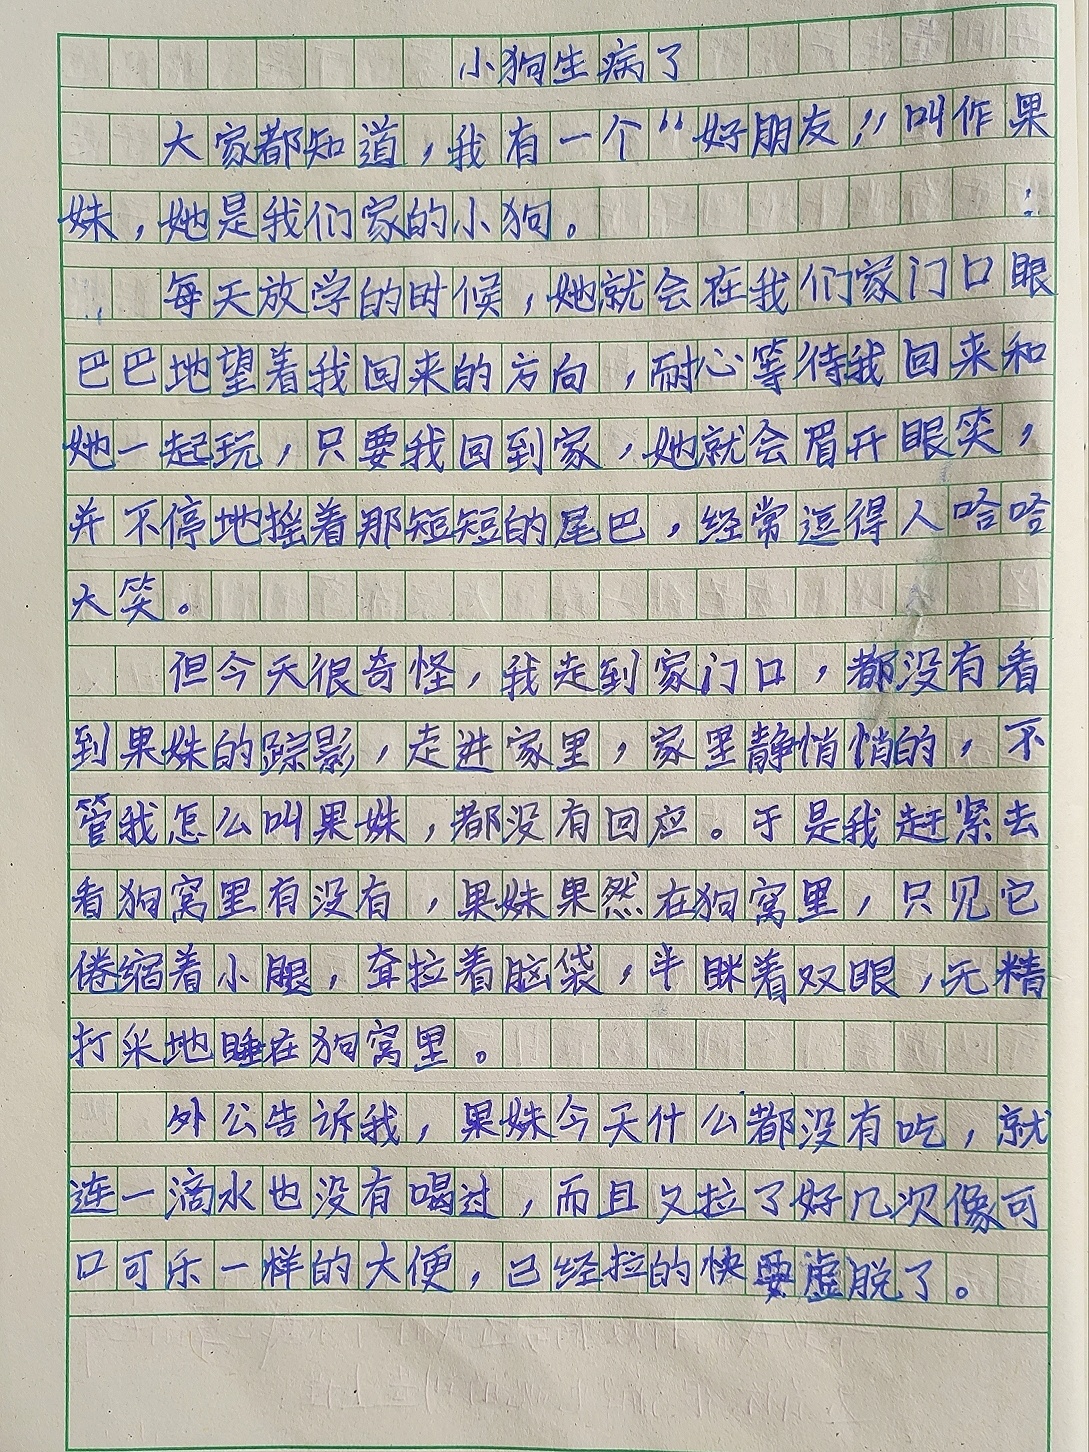 小狗生病了
大家都知道，我有一个“好朋友，”叫作果
妹，她是我们家的小狗。
每天放学的时候，她就会在我们家门口眼
巴巴地望着我回来的方向，耐心等待我回来和
她一起玩，只要我回到家，她就会眉开眼笑，
并不停地摇着那短短的尾巴，经常逗得人哈哈
大笑。
但今天很奇怪，我走到家门口，都没有看
到果妹的踪影，走进家里，家里静悄悄的，不
管我怎么叫果妹，都没有回应。于是我赶紧去
看狗窝里有没有，果妹果然在狗窝里，只见它
倦缩着小腿，耷拉着脑袋，半眯着双眼，无精
打采地睡在狗窝里。
外公告诉我，果妹今天什么都没有吃，就
连一滴水也没有喝过，而且又拉了好几次像可
口可乐一样的大便，已经拉的快要虚脱了。